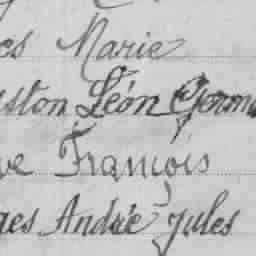 es Marie
ston Léon Germ
ve François
ges André Jules